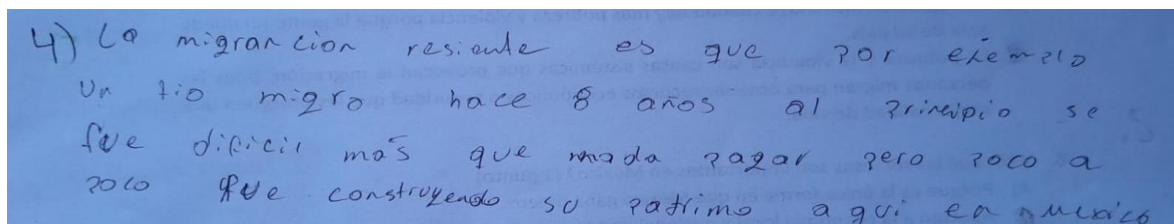 4) La migrancion resiente es que por exemplo
Un tio migro hace 8 años al principio se
fue dificil más que mada pagar pero poco a
poco fue construyendo su patrimo aqui en mexico